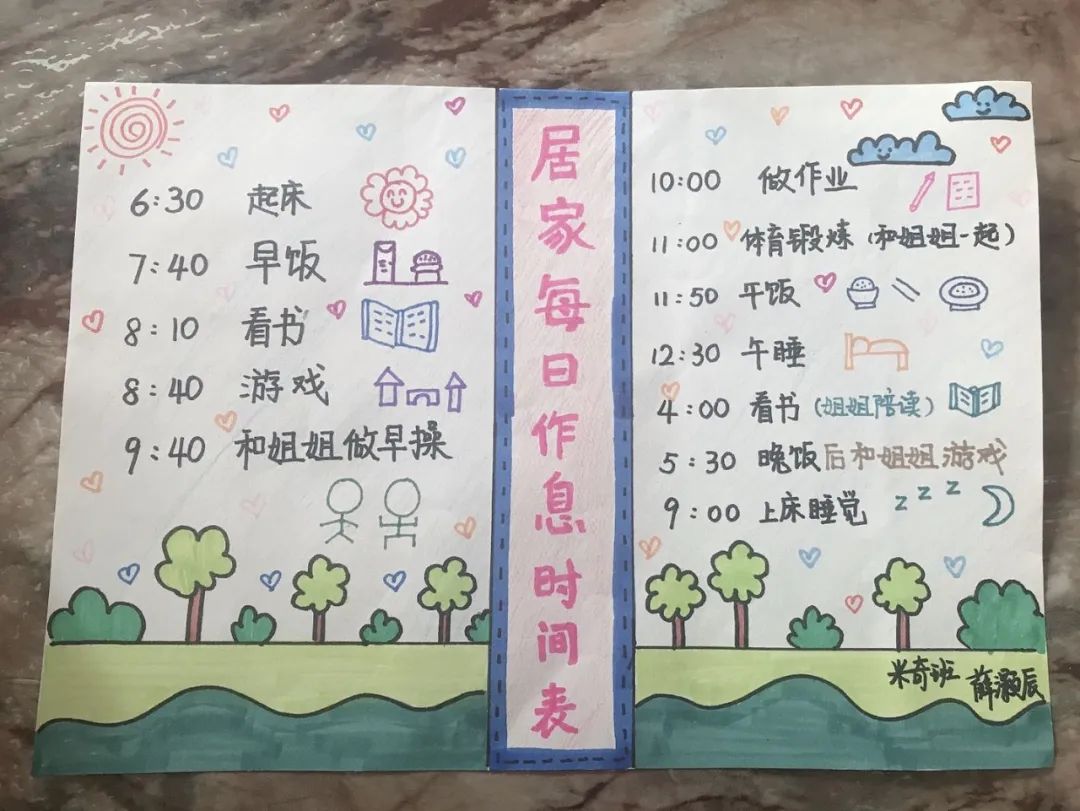 居家每日作息时间表
6:30 起床
7:40 早饭
8:10 看书
8:40 游戏
9:40 和姐姐做早操
10:00 做作业
11:00 体育锻炼(和姐姐一起)
11:50 平饭
12:30 午睡
4:00 看书(姐姐陪读)
5:30 晚饭后和姐姐游戏
9:00 上床睡觉 z z z
米奇班 薛灏辰